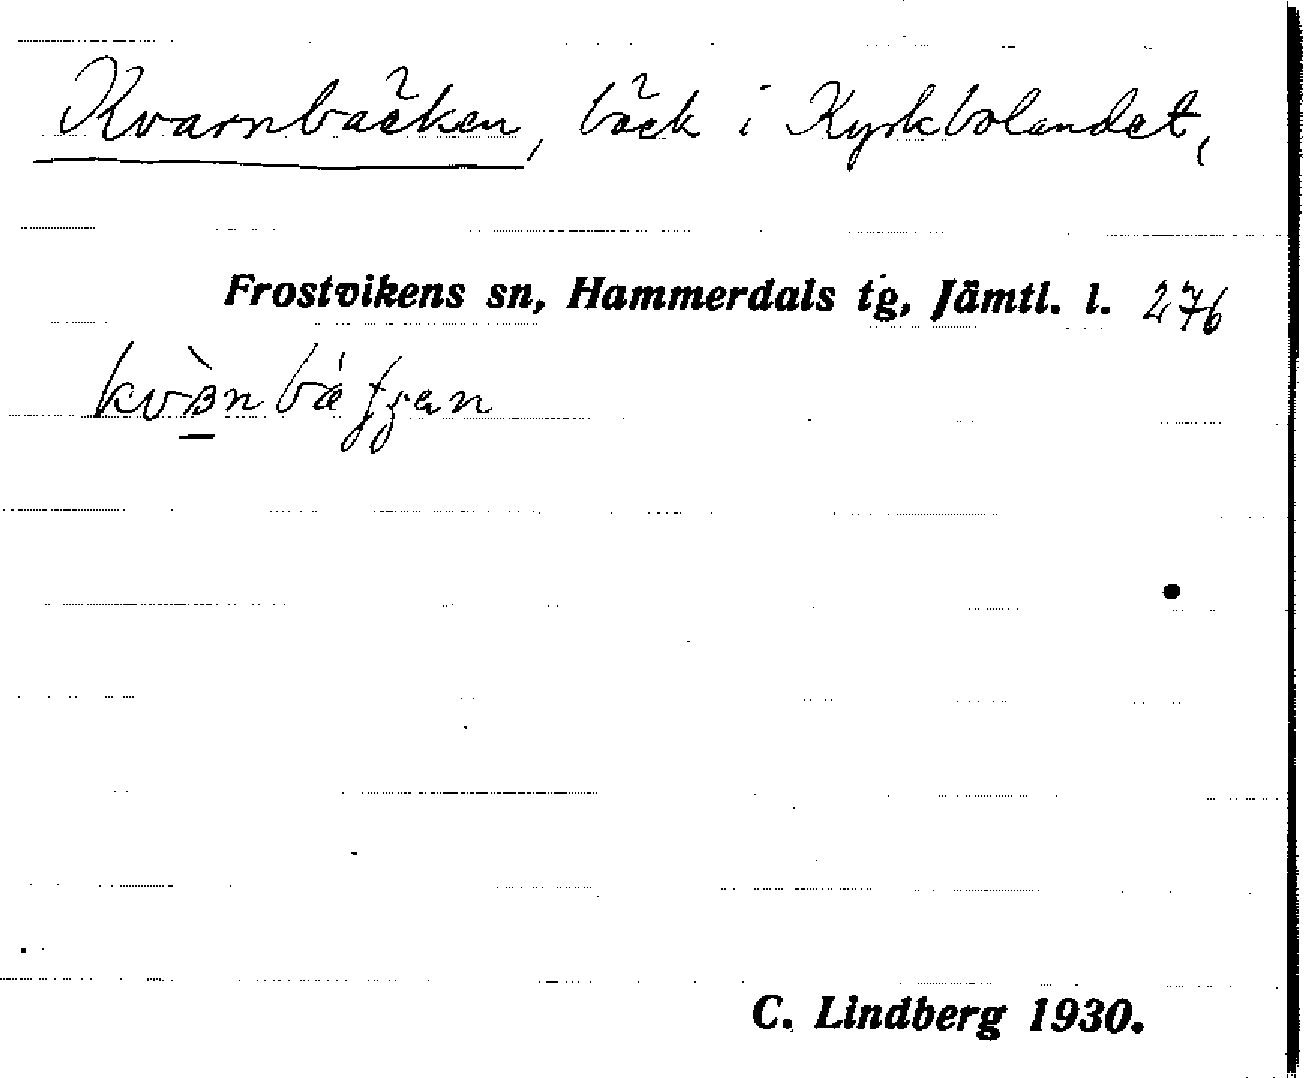 Kvarnbäcken, bäck i Kyrkbolandet,
Frostvikens sn, Hammerdals tg, Jämtl. l. 276
C. Lindberg 1930.